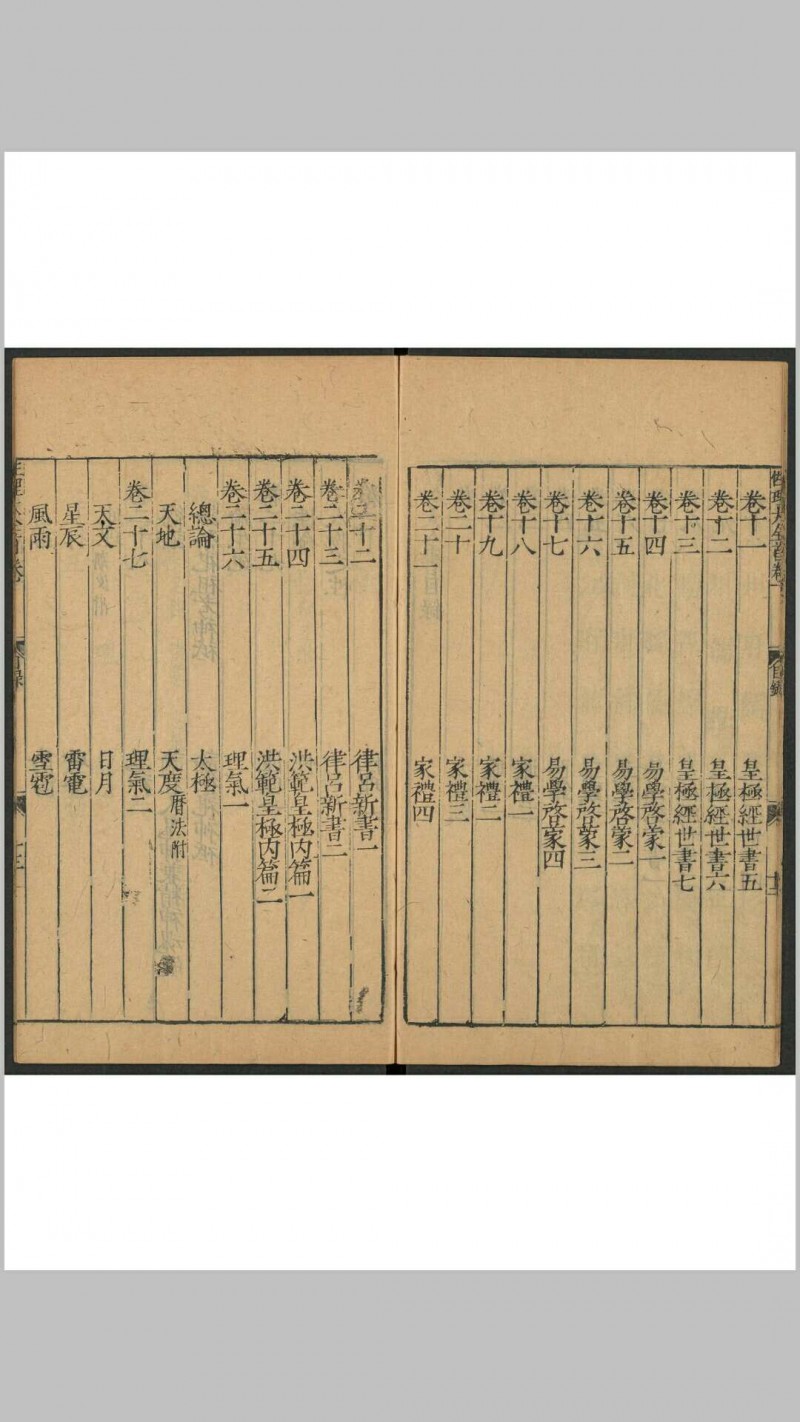 卷十一 皇極經世書五
卷十二 皇極經世書六
卷十三 皇極經世書七
卷十四 易學啓蒙一
卷十五 易學啓蒙二
卷十六 易學啓蒙三
卷十七 易學啓蒙四
卷十八 家禮一
卷十九 家禮二
卷二十 家禮三
卷二十一 家禮四
卷二十二 律呂新書一
卷二十三 律呂新書二
卷二十四 洪範皇極內篇一
卷二十五 洪範皇極內篇二
卷二十六 理氣一
總論 太極
天地 天度曆法附
卷二十七 理氣二
天文 日月
星辰 雷電
風雨 雪雹